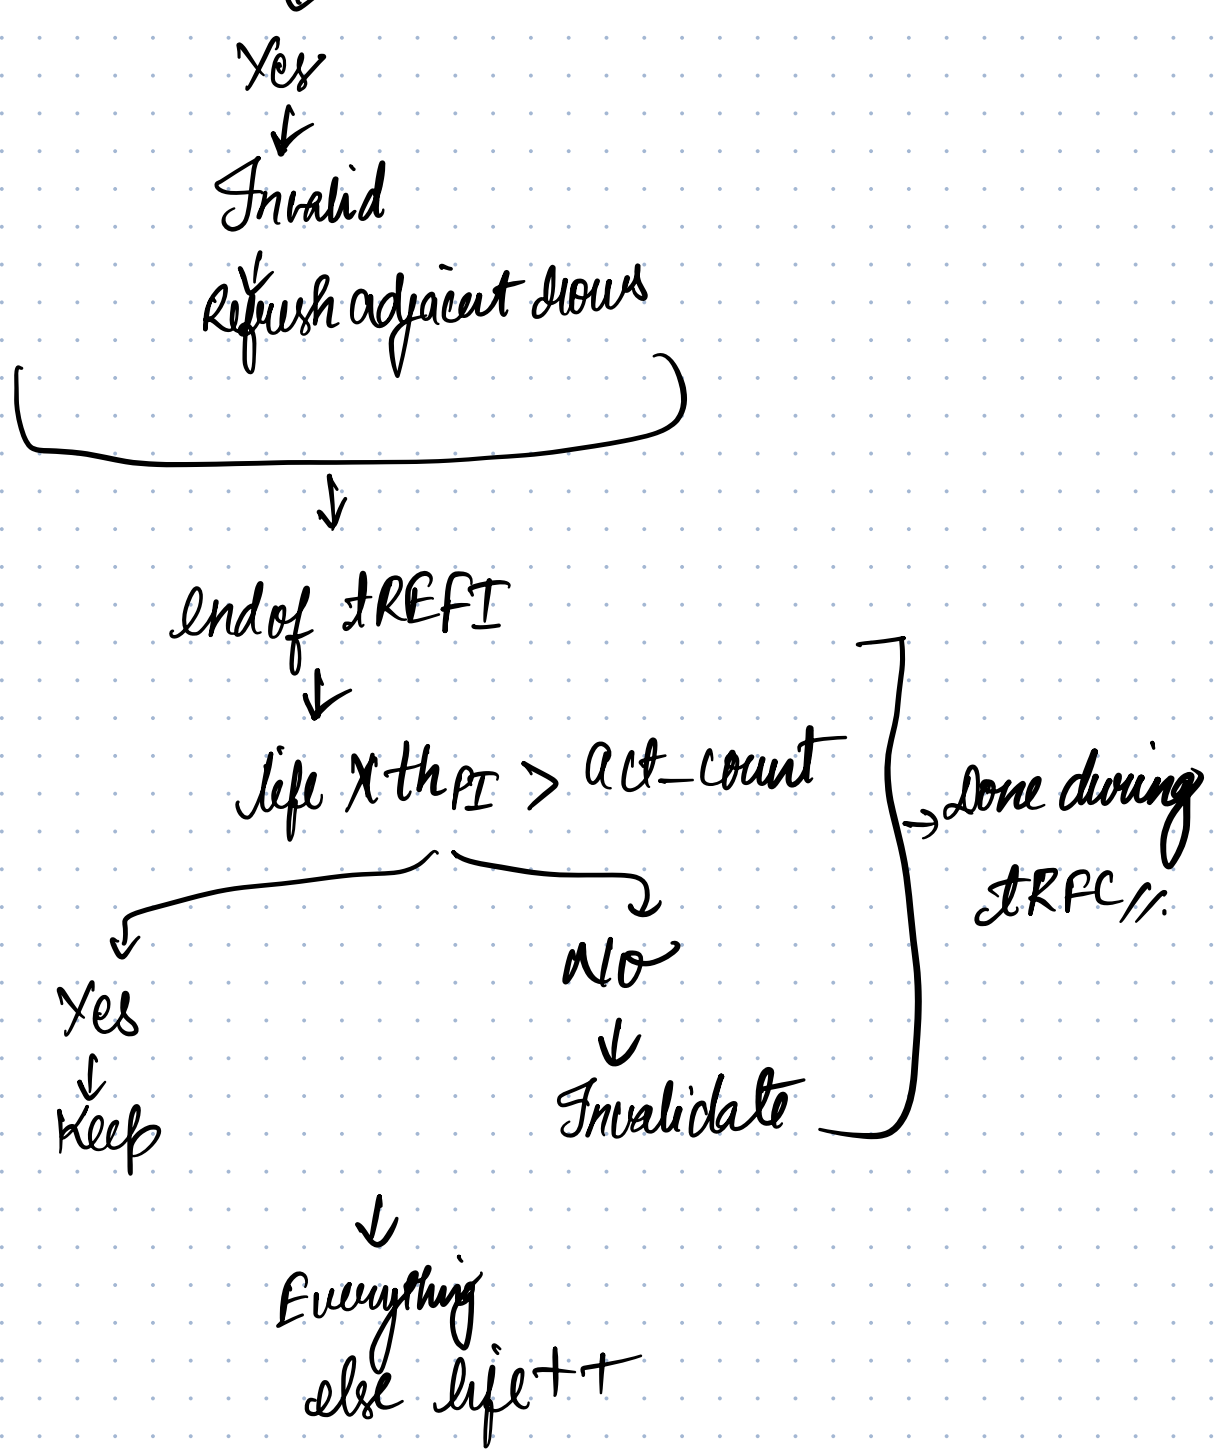 Yes
Invalid
Refresh adjacent rows
end of tREFI
life X th PI > act_count
Done during
tRFC //.
Yes
No
Keep
Invalidate
Everything
else life++